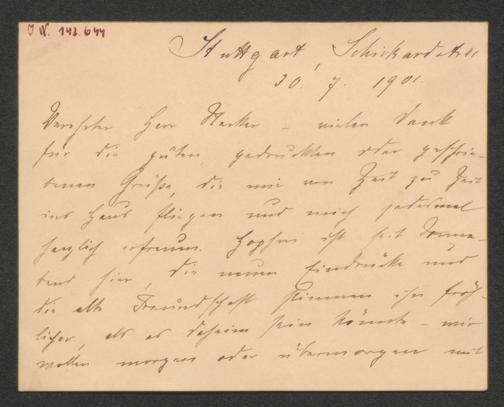 J.N. 142.644
Stuttgart, Schickardstr.
30. 7. 1901.
Verehrter Herr Necker – vielen Dank
für die guten, gedruckten oder geschrie-
benen Grüße, die mir von Zeit zu Zeit
ins Haus fliegen und mich jedesmal
herzlich erfreuen. ist seit Sonna-
bend hier, die neuen Eindrücke und
die alte Freundschaft stimmen ihn fröh-
licher, als er daheim sein könnte – wir
wollen morgen oder übermorgen mit